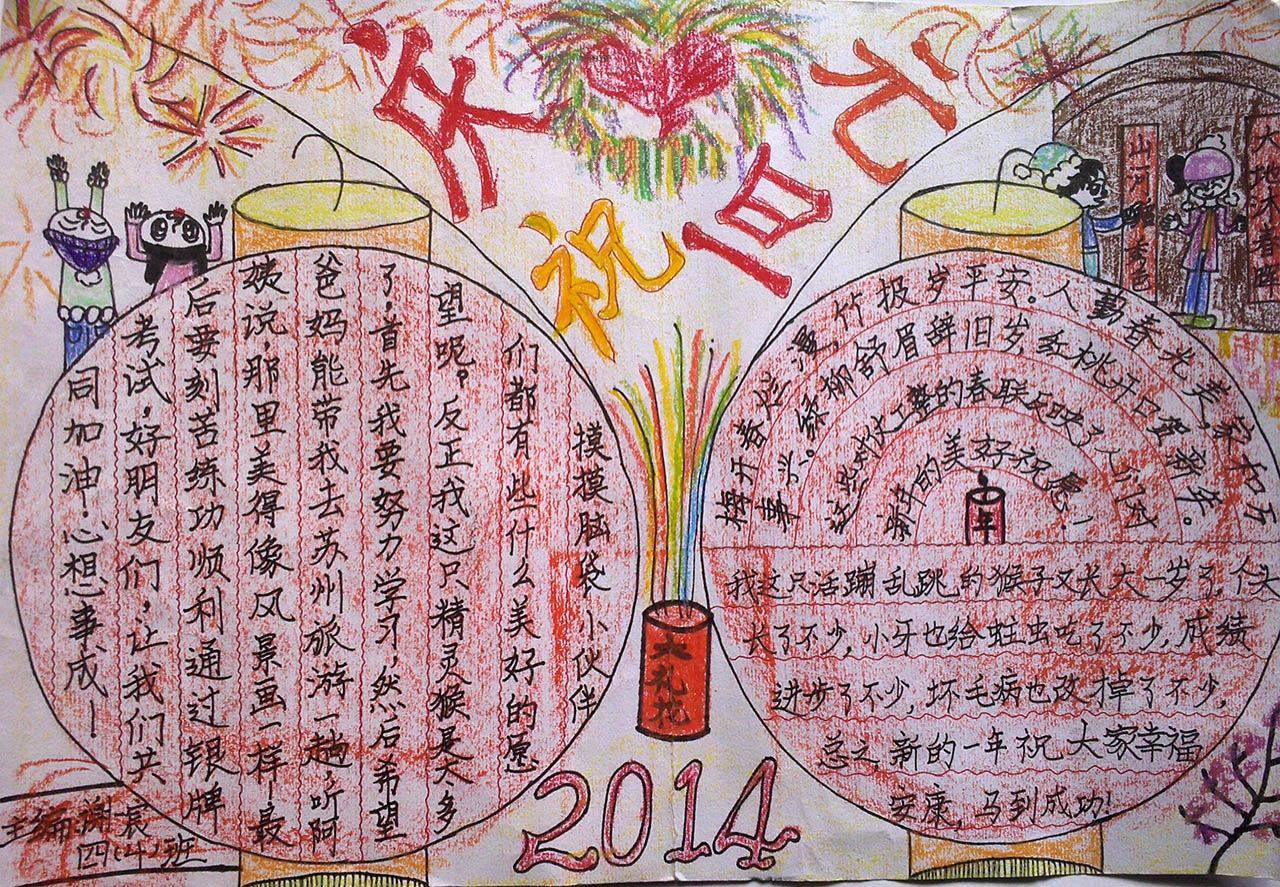 庆祝元旦
山河 秀色
大地沐春晖
摸摸脑袋小伙伴
们都有些什么美好的愿
望呢？反正我这只精灵猴是太多
了。首先我要努力学习，然后希望
爸妈能带我去苏州旅游一趟，听阿
姨说，那里美得像风景画一样。最
后要刻苦练功顺利通过银牌
考试。好朋友们，让我们共
同加油。心想事成！
梅开春烂漫，竹报岁平安。人勤春光美，家和万
事兴。绿柳舒眉辞旧岁，红桃开口贺新年。
这些对仗工整的春联反映了人们对
新年的美好祝愿！
年
我这只活蹦乱跳的猴子又长大一岁了，个头
长了不少，小牙也给蛀虫吃了不少，成绩
进步了不少，坏毛病也改掉了不少，
总之新的一年祝大家幸福
安康，马到成功！
大礼花
2014
主编：谢
四（4）班